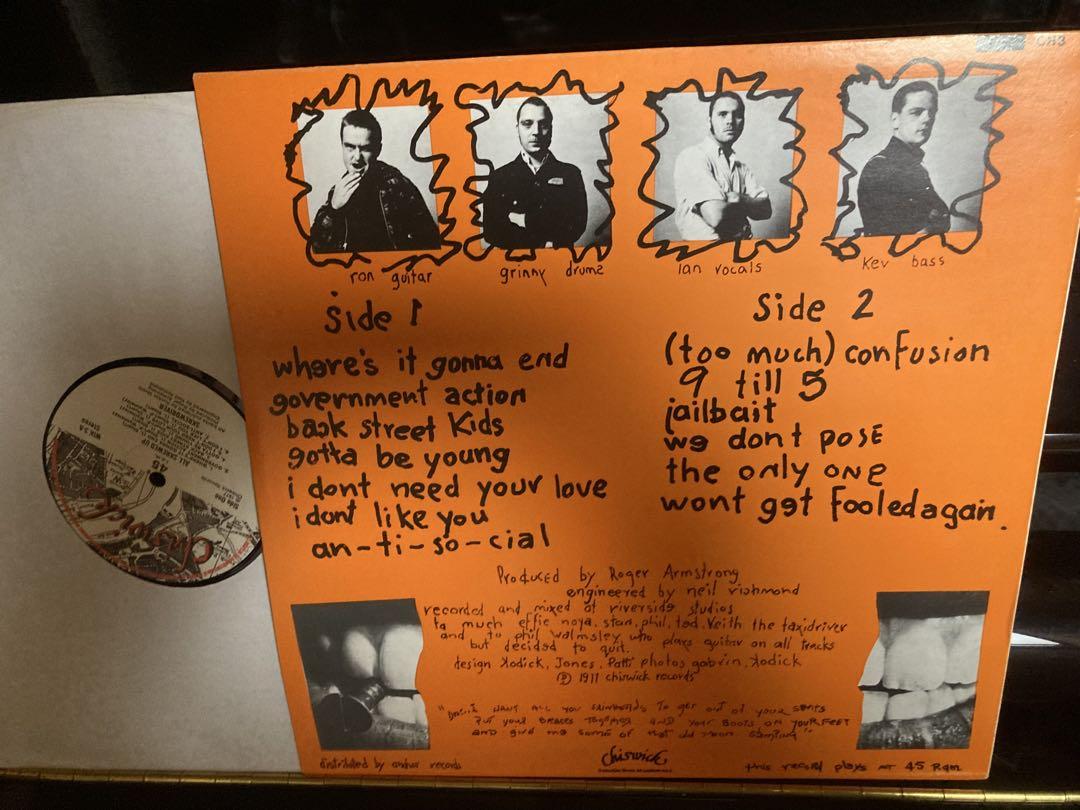 CH3
ron guitar
grinny drums
Ian vocals
Kev bass
Side 1
where's it gonna end
government action
back street Kids
gotta be young
i dont need your love
i dont like you
an-ti-so-cial
Side 2
(too much) confusion
9 till 5
jailbait
we dont pose
the only one
wont get fooled again.
Produced by Roger Armstrong
engineered by neil richmond
recorded and mixed at riverside studios
ta much effie noya, stan, phil, ted, Keith the taxidriver
and to phil walmsley who plays guitar on all tracks
but decided to quit.
design Kodick, Jones, Patti photos gabrin, Kodick
℗ 1977 chiswick records
WANT ALL YOU SKINHEADS TO get out of your seats
Put your BRACES Together AND Your BOOTS on YOUR FEET
AND give me some of that old moon stomping"
distributed by anchor records
Chiswick
this record plays AT 45 Rpm
ALL SKREWED UP
SKREWDRIVER
WIK 3A
Stereo
45
Side One
Chiswick